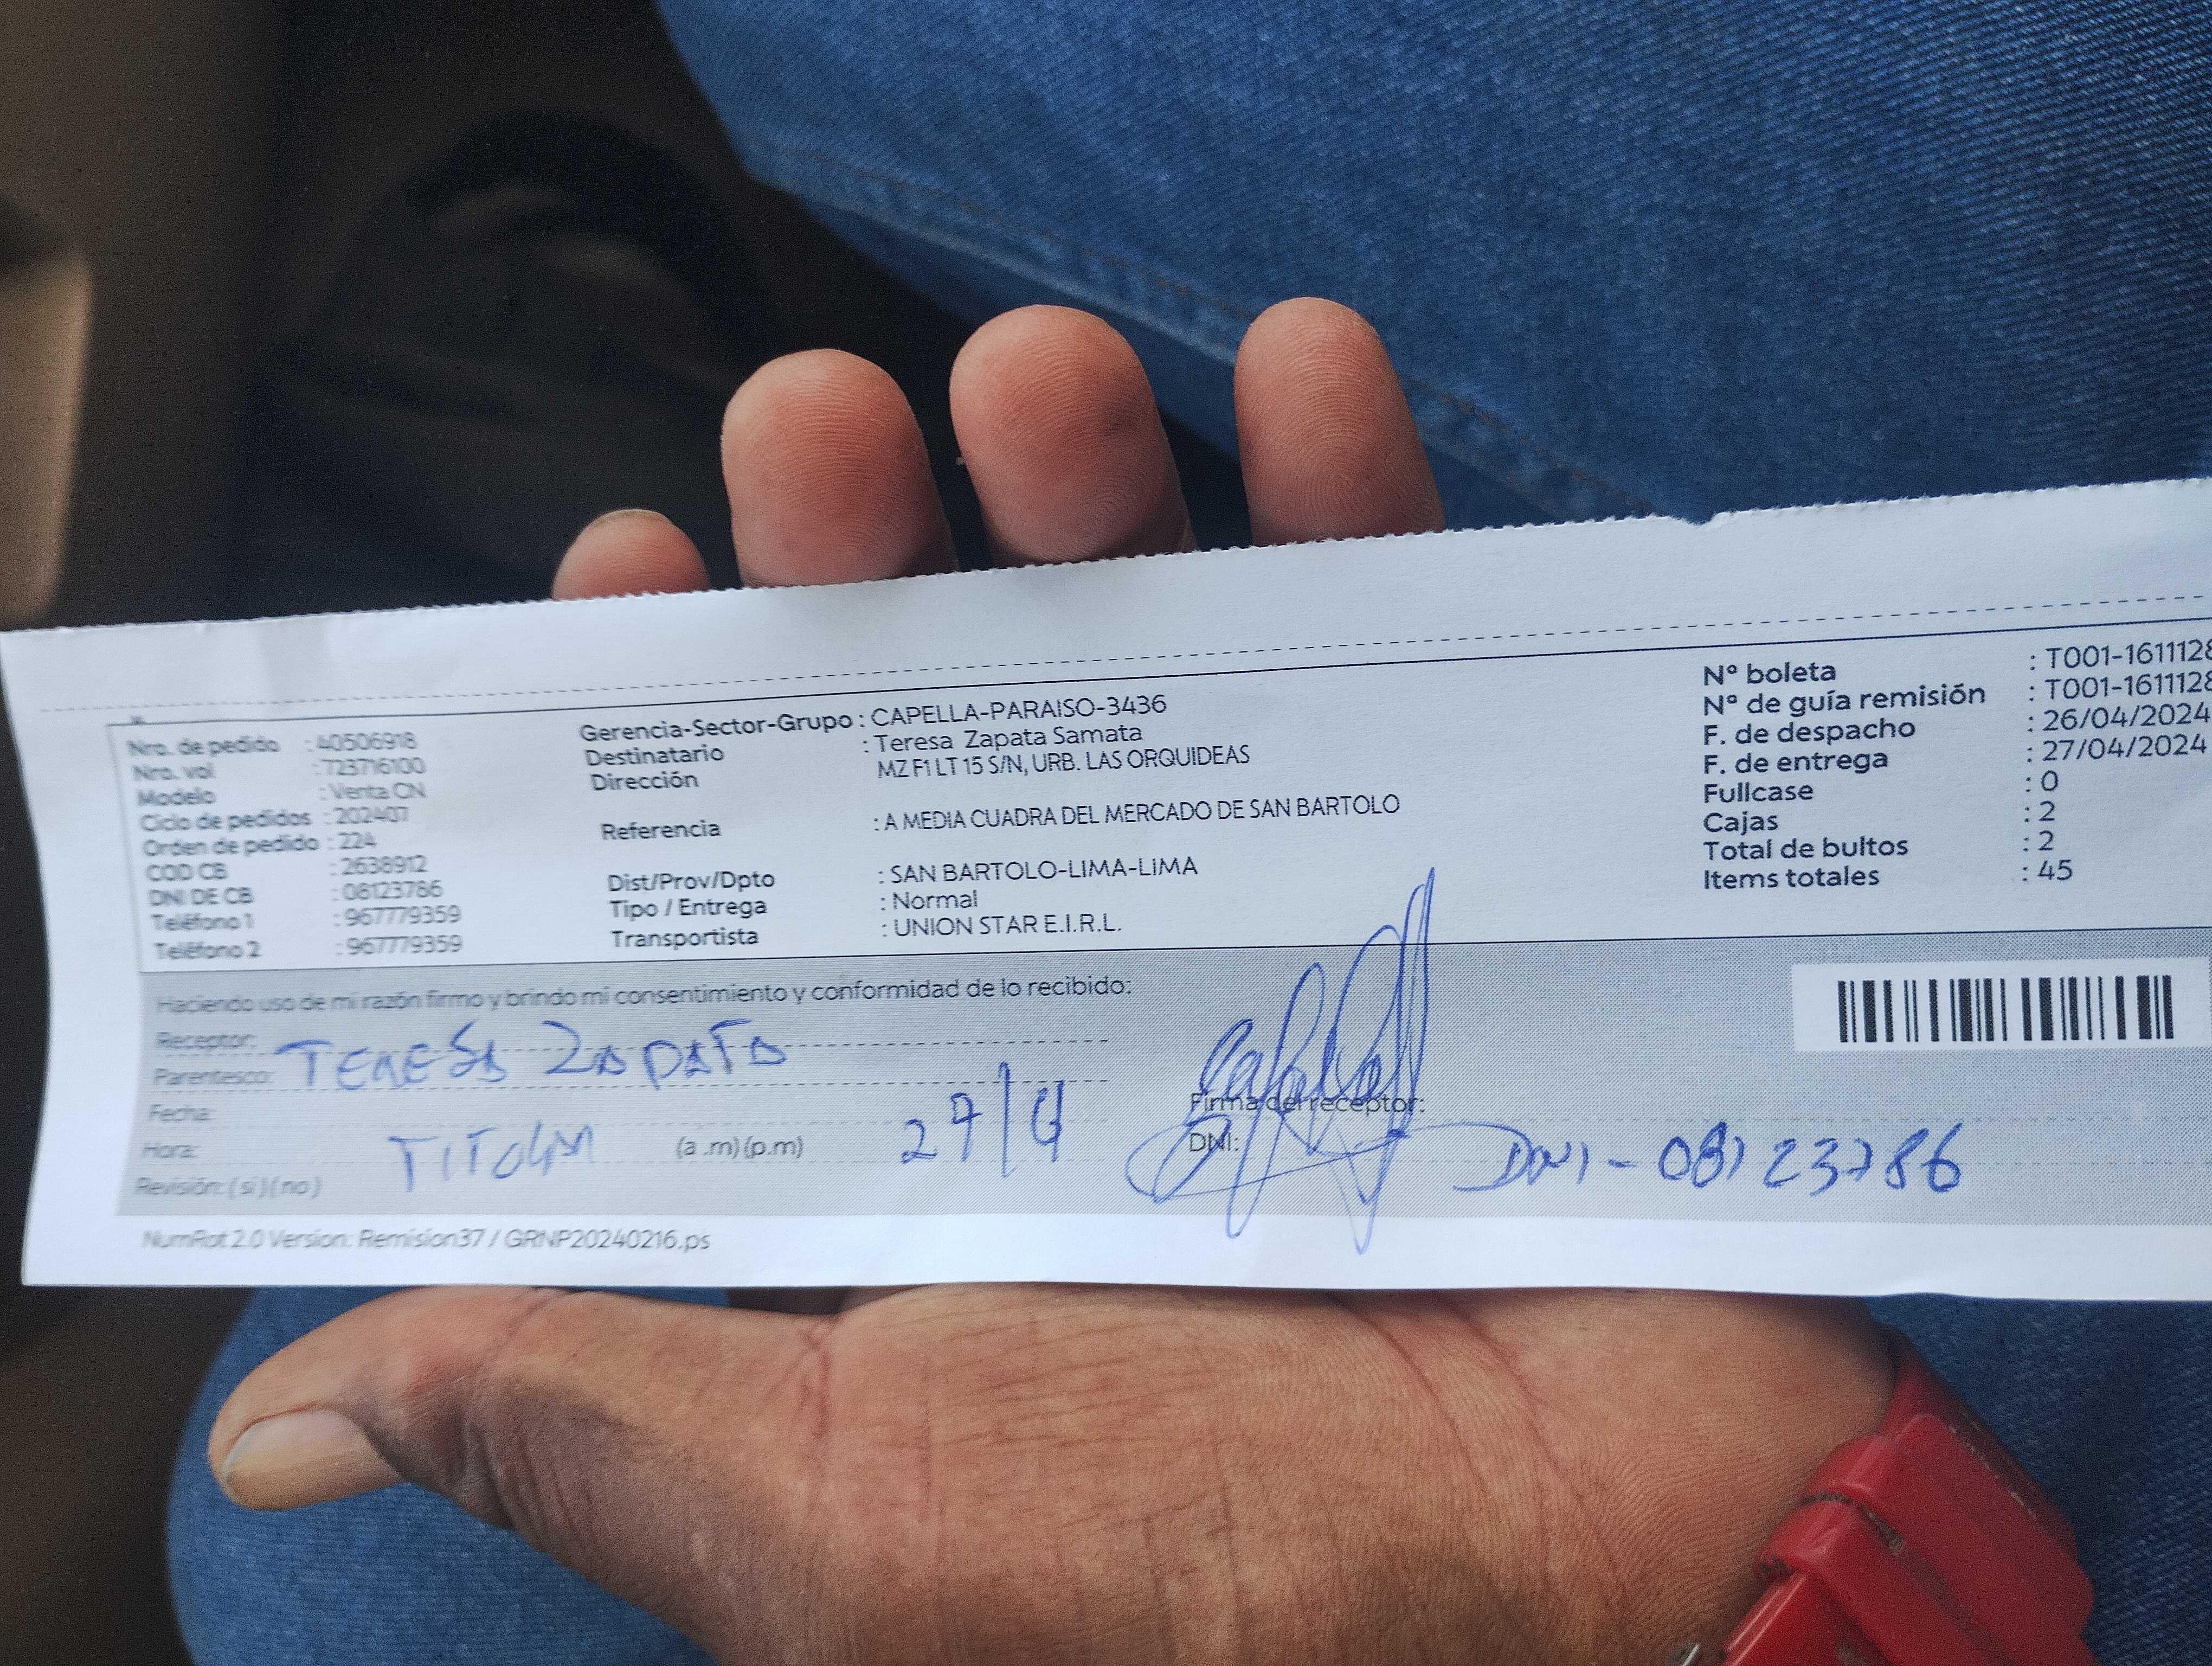 Nro. de pedido : 40506918
Nro. vol : 723716100
Modelo : Venta CN
Ciclo de pedidos : 202407
Orden de pedido : 224
COD CB : 2638912
DNI DE CB : 08123786
Teléfono 1 : 967779359
Teléfono 2 : 967779359
Gerencia-Sector-Grupo : CAPELLA-PARAISO-3436
Destinatario : Teresa Zapata Samata
Dirección MZ F1 LT 15 S/N, URB. LAS ORQUIDEAS
Referencia : A MEDIA CUADRA DEL MERCADO DE SAN BARTOLO
Dist/Prov/Dpto : SAN BARTOLO-LIMA-LIMA
Tipo / Entrega : Normal
Transportista : UNION STAR E.I.R.L.
Nº boleta : T001-1611128
Nº de guía remisión : T001-1611128
F. de despacho : 26/04/2024
F. de entrega : 27/04/2024
Fullcase : 0
Cajas : 2
Total de bultos : 2
Items totales : 45
Haciendo uso de mi razón firmo y brindo mi consentimiento y conformidad de lo recibido:
Receptor:
Parentesco: TERESA ZAPATA
Fecha:
Hora: TITULAR (a .m) (p.m) 27/4
Revisión: (si) (no)
Firma del receptor:
DNI: DNI - 08123786
NumRot 2.0 Version: Remision37 / GRNP20240216.ps